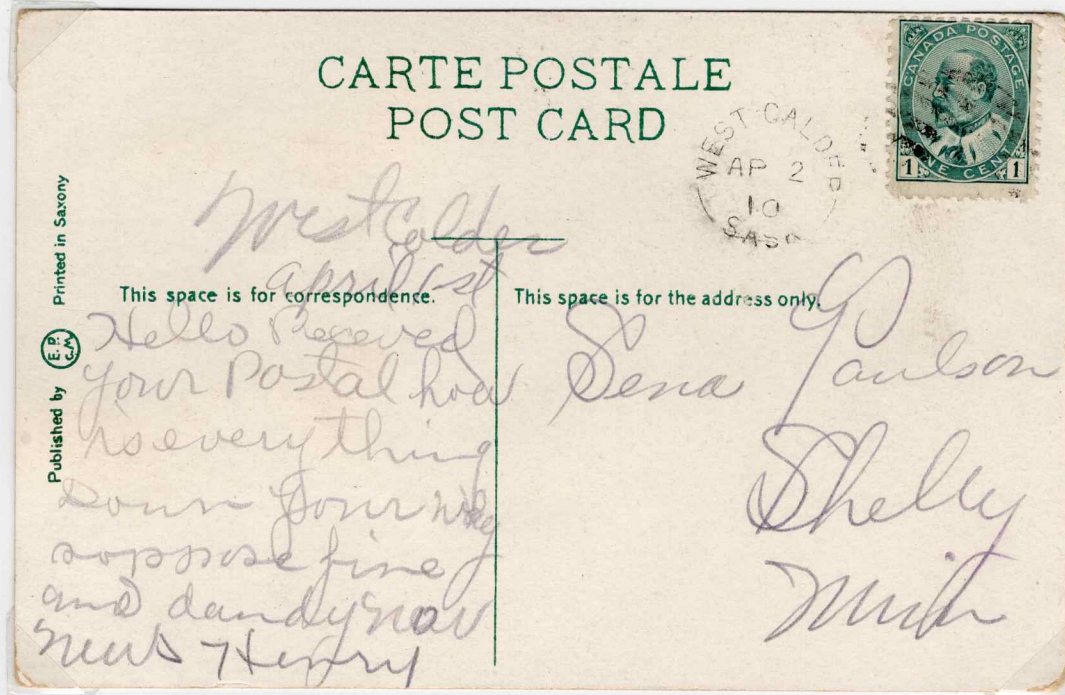 CARTE POSTALE
POST CARD
CANADA POSTAGE
1 ONE CENT 1
WEST CALDER
AP 2
10
SASK
Printed in Saxony
Published by E.P. C.M.
West Calder
april 1st
This space is for correspondence.
Hello Receved
your Postal how
is everything
down your way
soppose fine
and dandy now
Henry
This space is for the address only.
Sena Paulson
Shelly
Minn